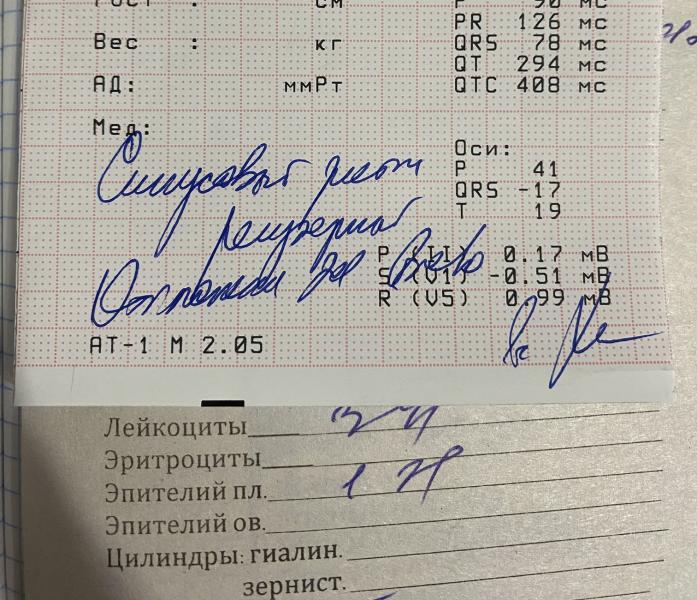 Рост : см
P 90 мс
PR 126 мс
Вес : кг
QRS 78 мс
QT 294 мс
АД: ммРт
QTC 408 мс
Мед:
Оси:
P 41
QRS -17
T 19
Синусовый ритм
регулярный
Отклонение ЭОС влево
P (II) 0.17 мВ
S (V1) -0.51 мВ
R (V5) 0.99 мВ
AT-1 M 2.05
Лейкоциты
Эритроциты
Эпителий пл.
Эпителий ов.
Цилиндры: гиалин.
зернист.